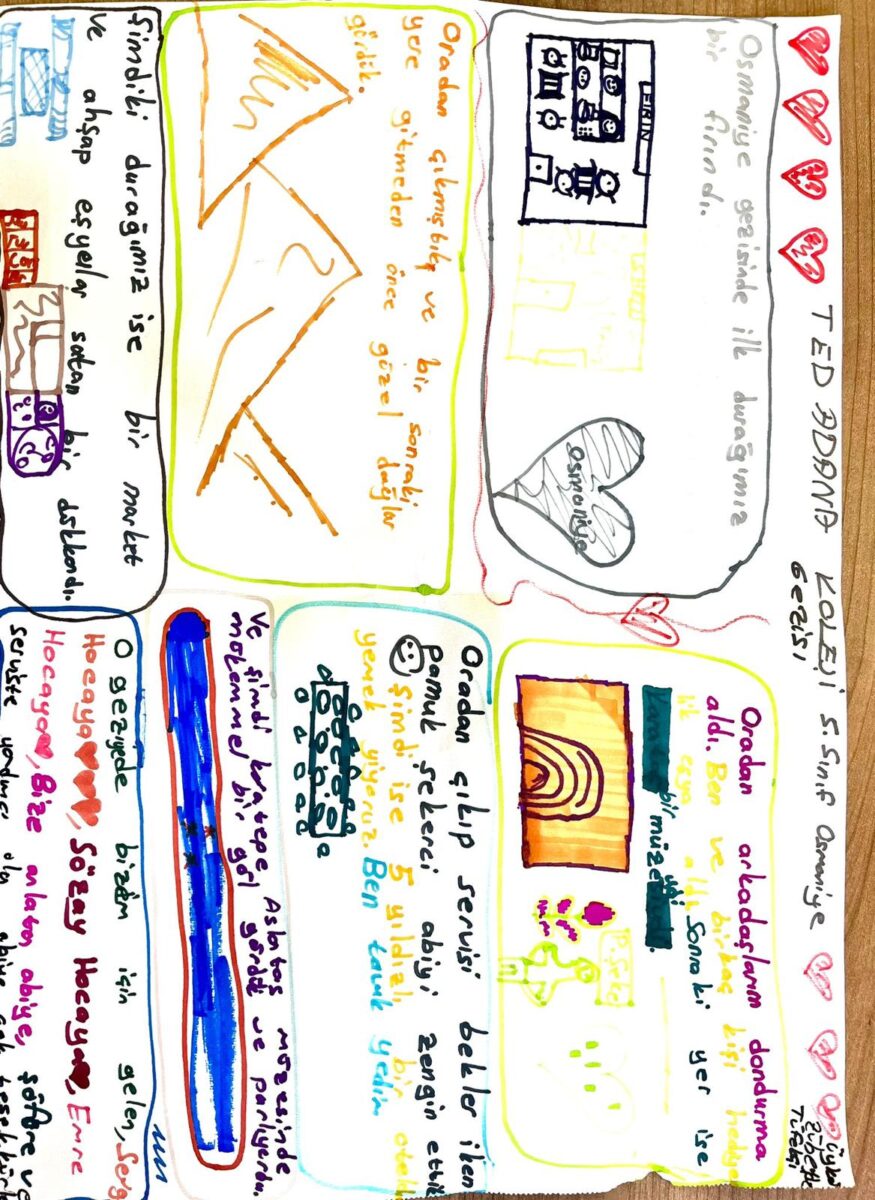 TED ADANA KOLEJİ 5.Sınıf Osmaniye
Gezisi
Osmaniye gezisinde ilk durağımız
bir fırındı.
FIRIN
Osmaniye
Oradan çıkmıştık ve bir sonraki
yere gitmeden önce güzel dağlar
gördük.
Şimdiki durağımız ise bir market
ve ahşap eşyalar satan bir dükkandı.
Oradan arkadaşlarım dondurma
aldı. Ben ve birkaç kişi hediye
lik eşya aldı. Sonraki yer ise
bir müze
Oradan çıkıp servisi bekler iken
pamuk şekerci abiyi zengin ettik
Şimdi ise 5 yıldızlı bir otelde
yemek yiyoruz. Ben tavuk yedim
Ve şimdi karatepe Aslantaş müzesinde
mükemmel bir göl gördük ve parlıyordu.
O gezide bizim için gelen,
Hocaya, Sözay Hocaya, Emre
Hocaya, Bize anlatan abiye, şöföre ve
serviste yardımcı olan abiye çok